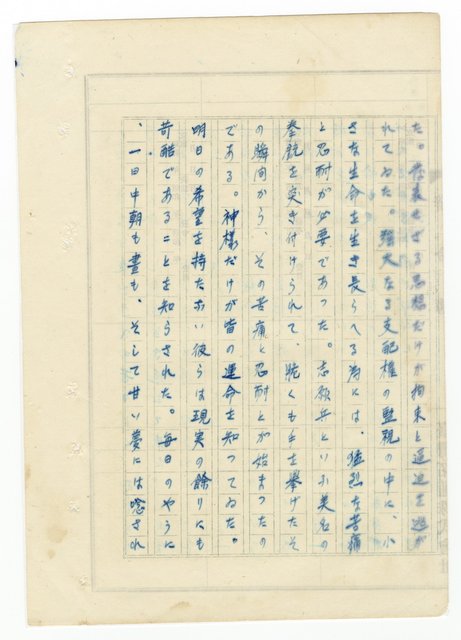 た。発表せざる思想だけが拘束と逼迫を逃が
れてゐた。強大なる支配権の監視の中に、小
さな生命を生き長らへる為には、猛烈な苦痛
と忍耐が必要であった。志願兵といふ美名の
拳銃を突き付けられて、脆くも手を挙げたそ
の瞬间から、その苦痛と忍耐とが始まったの
である。神様だけが皆の運命を知ってゐた。
明日の希望を持たない彼らは現実の餘りにも
苛酷であることを知らされた。毎日のやうに
、一日中朝も晝も、そして甘い夢には唸され